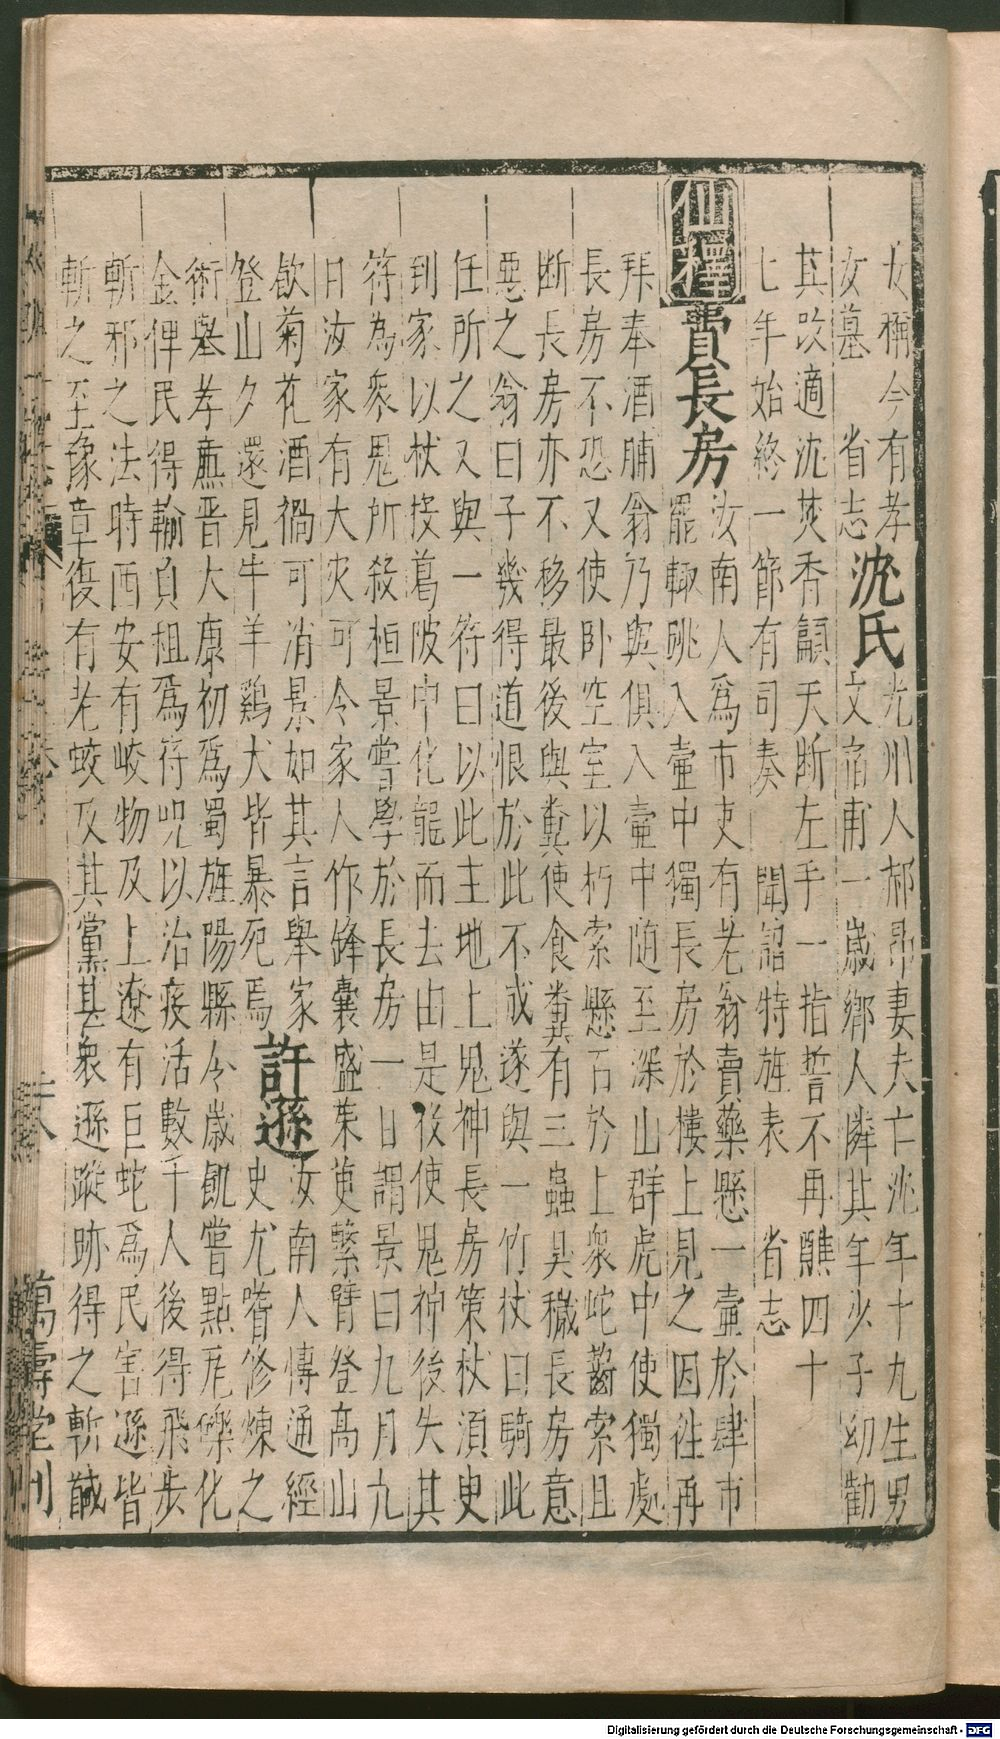 女稱今有孝
女墓 省志
沈氏
光州人祁昻妻夫亡年十九生男
文宿甫一歲鄉人憐其年少子幼勸
其改適沈焚香籲天断左手一指誓不再醮四十
七年始終一節有司奏 聞詔特旌表 省志
仙釋
費長房
汝南人爲市吏有老翁賣藥懸一壷於肆市
罷輙跳入壷中獨長房於樓上見之因往再
拜奉酒脯翁乃與俱入壷中随至深山群虎中使獨處
長房不恐又使卧空室以朽索懸石於上衆蛇齧索且
断長房亦不移最後與糞使食糞有三蟲臭穢長房意
惡之翁曰子幾得道恨於此不成遂與一竹杖曰騎此
任所之又與一符曰以此主地上鬼神長房策杖湏臾
到家以杖投葛陂中化龍而去由是役使鬼神後失其
符為衆鬼所殺桓景嘗學於長房一日謂景曰九月九
日汝家有大灾可令家人作絳囊盛茱萸繫臂登高山
飲菊花酒禍可消景如其言舉家
登山夕還見牛羊鷄犬皆暴死焉
許遜
汝南人傳通經
史尤嗜修煉之
術舉孝廉晋大康初爲蜀旌陽縣令歲飢嘗點瓦礫化
金俾民得輸負租爲符呪以治疫活數千人後得飛步
斬邪之法時西安有蛟物及上遼有巨蛇爲民害遜皆
斬之至豫章復有老蛟及其黨甚衆遜蹤跡得之斬馘
萬壽堂刊
Digitalisierung gefördert durch die Deutsche Forschungsgemeinschaft - DFG